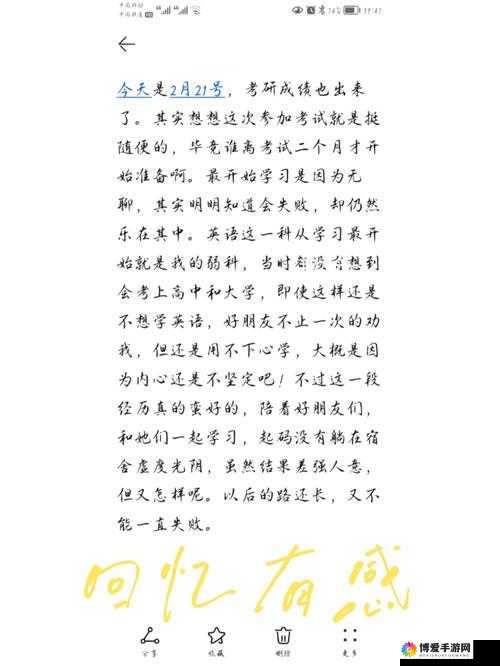 中国移动
中国移动
74%
19:47
今天是2月21号，考研成绩也出来
了。其实想想这次参加考试就是挺
随便的，毕竟谁离考试二个月才开
始准备啊。最开始学习是因为无
聊，其实明明知道会失败，却仍然
乐在其中。英语这一科从学习最开
始就是我的弱科，当时都没有想到
会考上高中和大学，即使这样还是
不想学英语，好朋友不止一次的劝
我，但还是用不下心学，大概是因
为内心还是不坚定吧！不过这一段
经历真的蛮好的，陪着好朋友们，
和她们一起学习，起码没有躺在宿
舍虚度光阴，虽然结果差强人意，
但又怎样呢。以后的路还长，又不
能一直失败。
回忆有感
分享 收藏 删除 更多
博爱手游网